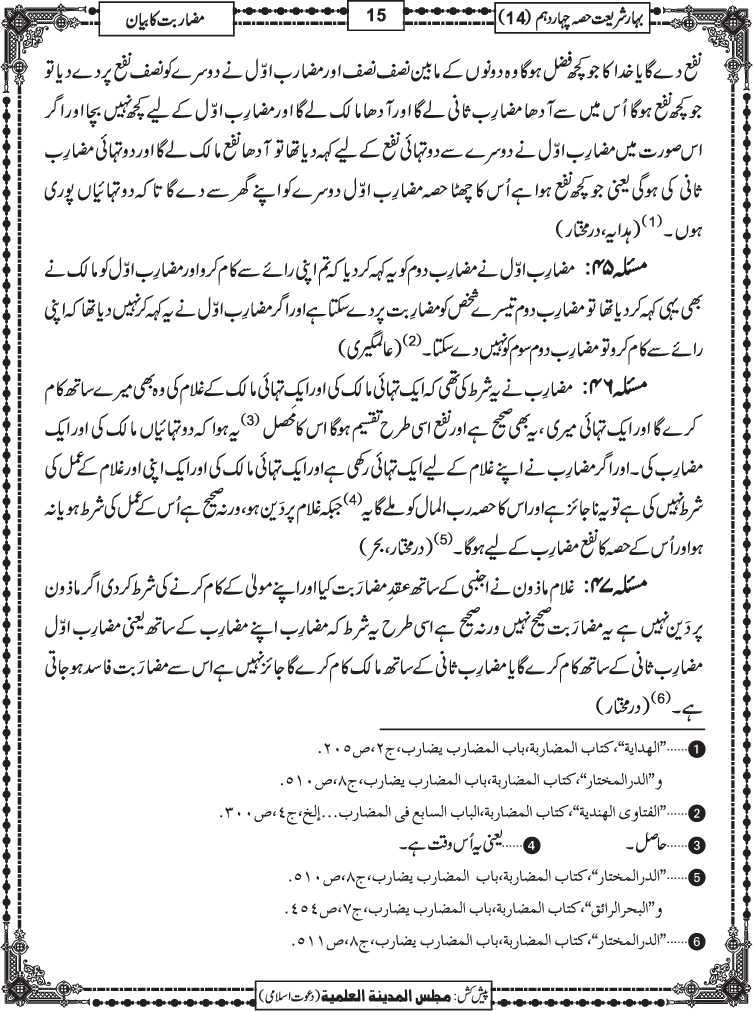 بہارِشریعت حصہ چہاردہم (14)
15
مضاربت کا بیان
نفع دے گا یا خدا کا جو کچھ فضل ہوگا وہ دونوں کے مابین نصف نصف اور مضارب اوّل نے دوسرے کو نصف نفع پر دے دیا تو
جو کچھ نفع ہوگا اُس میں سے آدھا مضارِب ثانی لے گا اور آدھا مالک لے گا اور مضارب اوّل کے لیے کچھ نہیں بچا اور اگر
اس صورت میں مضارِب اوّل نے دوسرے سے دو تہائی نفع کے لیے کہہ دیا تھا تو آدھا نفع مالک لے گا اور دو تہائی مضارب
ثانی کی ہوگی یعنی جو کچھ نفع ہوا ہے اُس کا چھٹا حصہ مضارِب اوّل دوسرے کو اپنے گھر سے دے گا تاکہ دو تہائیاں پوری
ہوں۔(1) (ہدایہ، درمختار)
مسئلہ ۴۵: مضارِب اوّل نے مضارب دوم کو یہ کہہ کر دیا کہ تم اپنی رائے سے کام کرو اور مضارِب اوّل کو مالک نے
بھی یہی کہہ کر دیا تھا تو مضارب دوم تیسرے شخص کو مضاربت پر دے سکتا ہے اور اگر مضارب اوّل نے یہ کہہ کر نہیں دیا تھا کہ اپنی
رائے سے کام کرو تو مضارب دوم سوم کو نہیں دے سکتا۔(2) (عالمگیری)
مسئلہ ۴۶: مضارب نے یہ شرط کی تھی کہ ایک تہائی مالک کی اور ایک تہائی مالک کے غلام کی وہ بھی میرے ساتھ کام
کرے گا اور ایک تہائی میری، یہ بھی صحیح ہے اور نفع اسی طرح تقسیم ہوگا اس کا مَحصل (3) یہ ہوا کہ دو تہائیاں مالک کی اور ایک
مضارب کی۔ اور اگر مضارب نے اپنے غلام کے لیے ایک تہائی رکھی ہے اور ایک تہائی مالک کی اور ایک اپنی اور غلام کے عمل کی
شرط نہیں کی ہے تو یہ ناجائز ہے اور اس کا حصہ رب المال کو ملے گا یہ (4) جبکہ غلام پر دَین ہو، ورنہ صحیح ہے اُس کے عمل کی شرط ہو یا نہ
ہو اور اُس کے حصہ کا نفع مضارب کے لیے ہوگا۔(5) (درمختار، بحر)
مسئلہ ۴۷: غلام ماذون نے اجنبی کے ساتھ عقدِ مضارَبت کیا اور اپنے مولیٰ کے کام کرنے کی شرط کر دی اگر ماذون
پر دَین نہیں ہے یہ مضارَبت صحیح نہیں ورنہ صحیح ہے اسی طرح یہ شرط کہ مضارِب اپنے مضارب کے ساتھ یعنی مضارب اوّل
مضارِب ثانی کے ساتھ کام کرے گا یا مضارِب ثانی کے ساتھ مالک کام کرے گا جائز نہیں ہے اس سے مضارَبت فاسد ہو جاتی
ہے۔(6) (درمختار)
1......"الهداية"،كتاب المضاربة،باب المضارب يضارب،ج٢،ص٢٠٥.
و"الدرالمختار"،كتاب المضاربة،باب المضارب يضارب،ج٨،ص٥١٠.
2......"الفتاوى الهندية"،كتاب المضاربة،الباب السابع في المضارب...إلخ،ج٤،ص٣٠٠.
3......حاصل۔ 4......یعنی یہ اُس وقت ہے۔
5......"الدرالمختار"،كتاب المضاربة،باب المضارب يضارب،ج٨،ص٥١٠.
و"البحرالرائق"،كتاب المضاربة،باب المضارب يضارب،ج٧،ص٤٥٤.
6......"الدرالمختار"،كتاب المضاربة،باب المضارب يضارب،ج٨،ص٥١١.
پیش کش: مجلس المدينة العلمية (دعوت اسلامی)